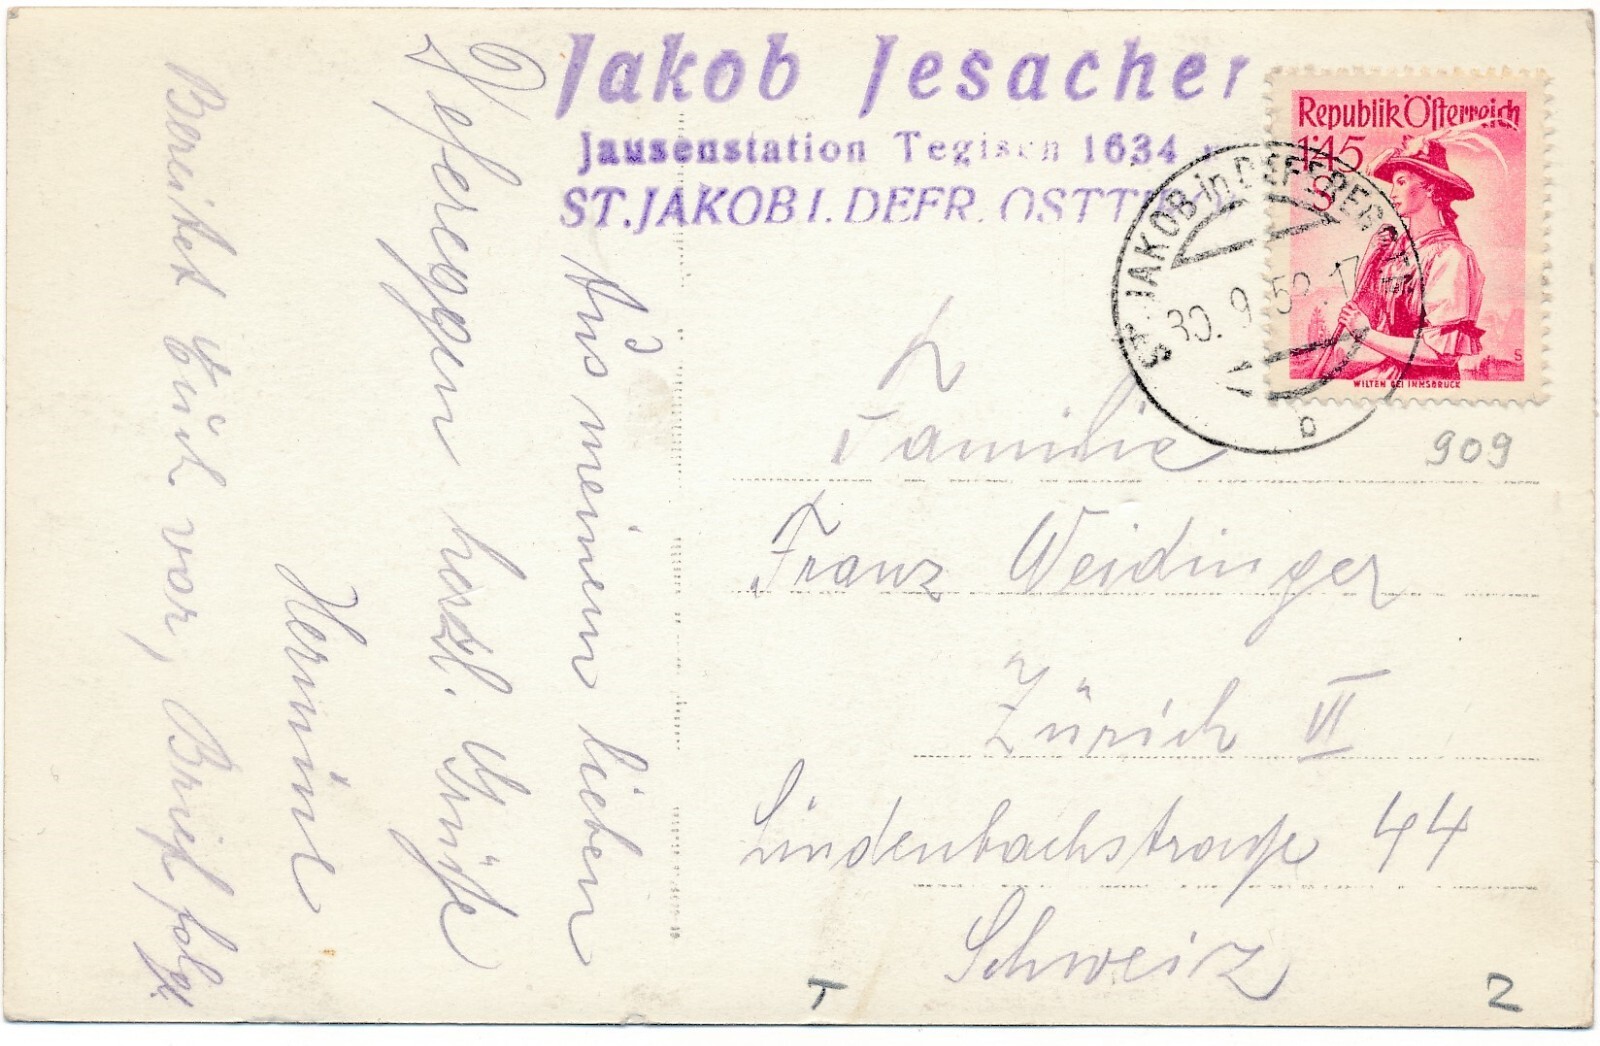 Jakob Jesacher
Jausenstation Tegisch 1634 m
ST. JAKOB I. DEFR. OSTTIROL
Republik Österreich
1'45
S
WILTEN BEI INNSBRUCK
S
ST. JAKOB in DEFEREGGEN
30. 9. 52. 17
b
909
Aus meinem lieben
Defereggen herzl. Grüße
Hermine
Bereitet Euch vor, Brief folgt.
L
Familie
Franz Weidinger
Zürich VI
Lindenbachstraße 44
Schweiz
T
Z